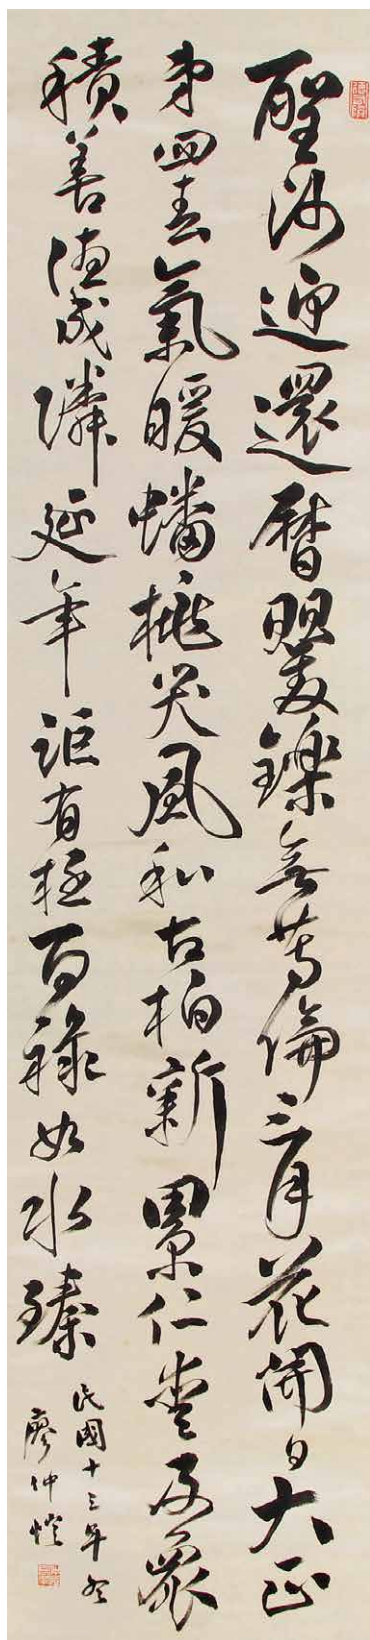 聖沙迎還曆矍鑠無等倫三月花開日大正
第四春氣暖蟠桃笑風和古柏新累仁愛及衆
積善德成隣延年詎有極百祿如水臻
民國十三年冬
廖仲愷